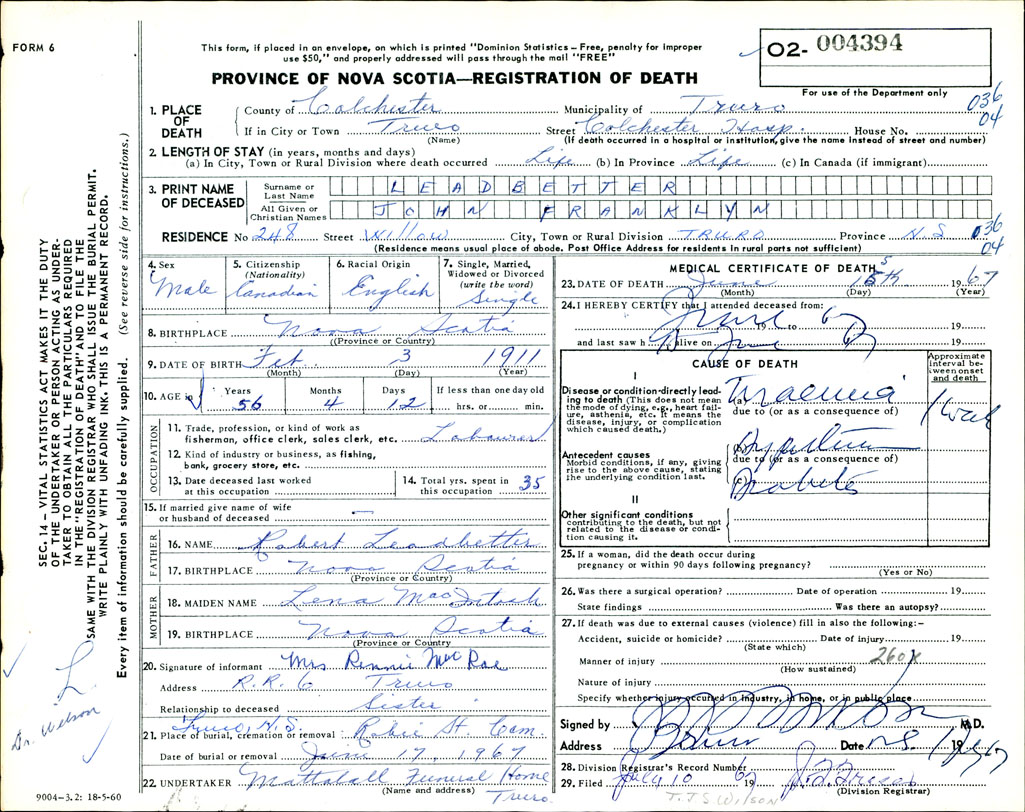 FORM 6
This form, if placed in an envelope, on which is printed "Dominion Statistics – Free, penalty for improper
use $50," and properly addressed will pass through the mail "FREE"
PROVINCE OF NOVA SCOTIA—REGISTRATION OF DEATH
02- 004394
For use of the Department only
036
04
1. PLACE OF DEATH
County of Colchester Municipality of Truro
If in City or Town Truro Street Colchester Hosp. House No.
(Name) (If death occurred in a hospital or institution, give the name instead of street and number)
2. LENGTH OF STAY (in years, months and days)
(a) In City, Town or Rural Division where death occurred Life (b) In Province Life (c) In Canada (if immigrant)
3. PRINT NAME OF DECEASED
Surname or Last Name LEADBETTER
All Given or Christian Names JOHN FRANKLYN
RESIDENCE No 248 Street Willow City, Town or Rural Division TRURO Province N.S 036
04
(Residence means usual place of abode. Post Office Address for residents in rural parts not sufficient)
4. Sex Male
5. Citizenship (Nationality) Canadian
6. Racial Origin English
7. Single, Married, Widowed or Divorced (write the word) Single
8. BIRTHPLACE Nova Scotia
(Province or Country)
9. DATE OF BIRTH Feb. 3 1911
(Month) (Day) (Year)
10. AGE in Years 56 Months 4 Days 12 If less than one day old hrs. or min.
OCCUPATION
11. Trade, profession, or kind of work as
fisherman, office clerk, sales clerk, etc. Labourer
12. Kind of industry or business, as fishing,
bank, grocery store, etc.
13. Date deceased last worked
at this occupation
14. Total yrs. spent in
this occupation 35
15. If married give name of wife
or husband of deceased —
FATHER
16. NAME Robert Leadbetter
17. BIRTHPLACE Nova Scotia
(Province or Country)
MOTHER
18. MAIDEN NAME Lena MacIntosh
19. BIRTHPLACE Nova Scotia
(Province or Country)
20. Signature of informant Mrs. Rennie MacRae
Address R.R. 6 Truro
Relationship to deceased Sister
Truro, N.S.
21. Place of burial, cremation or removal Robie St. Cem.
Date of burial or removal June 17, 1967
22. UNDERTAKER Mattatall Funeral Home
(Name and address) Truro.
9004-3.2: 18-5-60
MEDICAL CERTIFICATE OF DEATH
23. DATE OF DEATH June 15th 1967
(Month) (Day) (Year)
24. I HEREBY CERTIFY that I attended deceased from:
19 to 19
and last saw h alive on 19
CAUSE OF DEATH
Approximate interval between onset and death
I
Disease or condition directly leading to death (This does not mean the mode of dying, e.g., heart failure, asthenia, etc. It means the disease, injury, or complication which caused death.)
(a) Uraemia 1 week
due to (or as a consequence of)
Antecedent causes
Morbid conditions, if any, giving rise to the above cause, stating the underlying condition last.
(b)
due to (or as a consequence of)
(c) Diabetes
II
Other significant conditions
contributing to the death, but not related to the disease or condition causing it.
25. If a woman, did the death occur during
pregnancy or within 90 days following pregnancy?
(Yes or No)
26. Was there a surgical operation? Date of operation 19
State findings Was there an autopsy?
27. If death was due to external causes (violence) fill in also the following:–
Accident, suicide or homicide? Date of injury 19
(State which)
Manner of injury 260x
(How sustained)
Nature of injury
Specify whether injury occurred in industry, in home, or in public place
Signed by M.D.
Address Truro Date 19 67
28. Division Registrar's Record Number
29. Filed July 10 1967
(Division Registrar)
T.J.S WILSON
SEC. 14 – VITAL STATISTICS ACT MAKES IT THE DUTY
OF THE UNDERTAKER OR PERSON ACTING AS UNDER-
TAKER TO OBTAIN ALL THE PARTICULARS REQUIRED
IN THE "REGISTRATION OF DEATH" AND TO FILE THE
SAME WITH THE DIVISION REGISTRAR WHO SHALL ISSUE THE BURIAL PERMIT.
WRITE PLAINLY WITH UNFADING INK. THIS IS A PERMANENT RECORD.
Every item of information should be carefully supplied. (See reverse side for instructions.)
L
Dr. Wilson